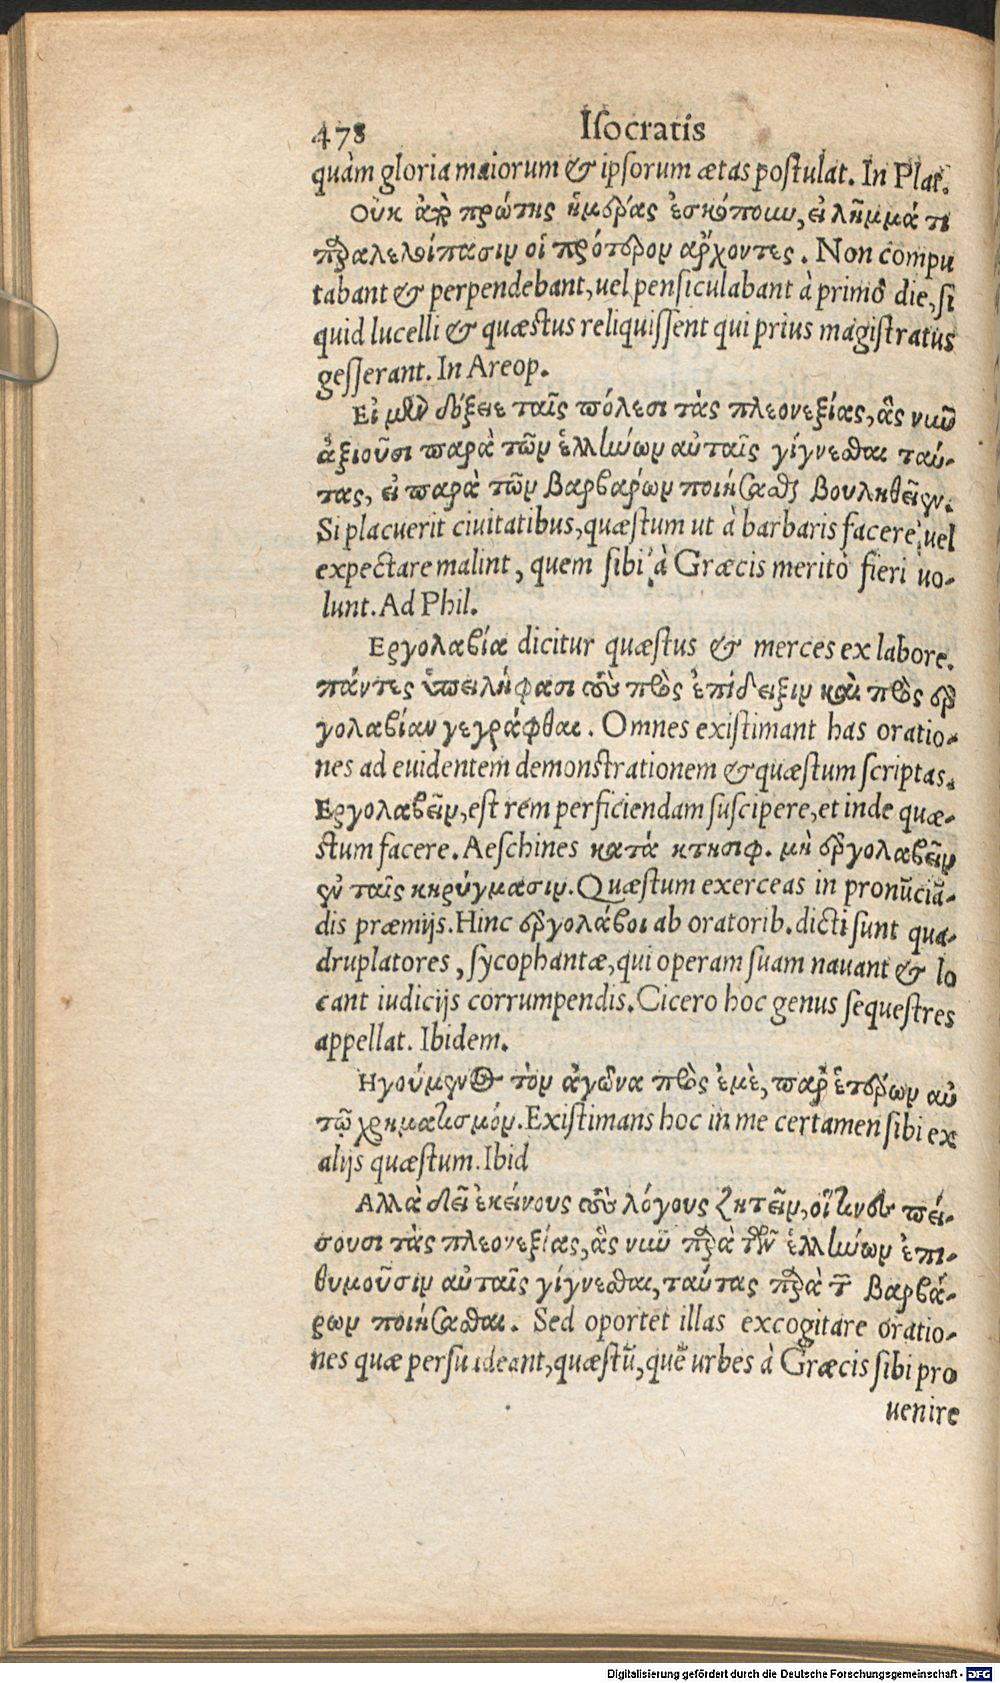 478 Isocratis
quàm gloria maiorum & ipsorum ætas postulat. In Plat.
Οὐκ ἀπὸ πρώτης ἡμέρας ἐσκόπουν, εἰ λῆμμά τι
παραλελοίπασιν οἱ πρότερον ἄρχοντες. Non compu
tabant & perpendebant, uel pensiculabant à primo die, si
quid lucelli & quæstus reliquissent qui prius magistratus
gesserant. In Areop.
Εἰ μὲν δόξειε ταῖς πόλεσι τὰς πλεονεξίας, ἃς νῦν
ἀξιοῦσι παρὰ τῶν ἑλλήνων αὐταῖς γίγνεσθαι ταύ-
τας, εἰ παρὰ τῶν βαρβάρων ποιήσασθαι βουληθεῖεν.
Si placuerit ciuitatibus, quæstum ut à barbaris facere, uel
expectare malint, quem sibi à Græcis meritò fieri uo-
lunt. Ad Phil.
Εργολαβία dicitur quæstus & merces ex labore.
πάντες ὑπειλήφασι τοὺς πρὸς ἐπίδειξιν καὶ πρὸς ἐρ
γολαβίαν γεγράφθαι. Omnes existimant has oratio-
nes ad euidentem demonstrationem & quæstum scriptas.
Εργολαβεῖν, est rem perficiendam suscipere, et inde quæ-
stum facere. Aeschines κατά κτησιφ. μὴ ἐργολαβεῖν
ἐν ταῖς κηρύγμασιν. Quæstum exerceas in pronũciã-
dis præmijs. Hinc ἐργολάβοι ab oratorib. dicti sunt qua-
druplatores, sycophantæ, qui operam suam nauant & lo
cant iudicijs corrumpendis. Cicero hoc genus sequestres
appellat. Ibidem.
Ηγούμενος τὸν ἀγῶνα πρὸς ἐμὲ, παρ' ἑτέρων αὐ
τῷ χρηματισμόν. Existimans hoc in me certamen sibi ex
alijs quæstum. Ibid
Αλλὰ δεῖ ἐκείνους τοὺς λόγους ζητεῖν, οἵτινες πεί-
σουσι τὰς πλεονεξίας, ἃς νῦν παρὰ τῶν ἑλλήνων ἐπι-
θυμοῦσιν αὐταῖς γίγνεσθαι, ταύτας παρὰ τ͂ βαρβά-
ρων ποιήσασθαι. Sed oportet illas excogitare oratio-
nes quæ persuadeant, quæstũ, quẽ urbes à Græcis sibi pro
uenire
Digitalisierung gefördert durch die Deutsche Forschungsgemeinschaft - DFG